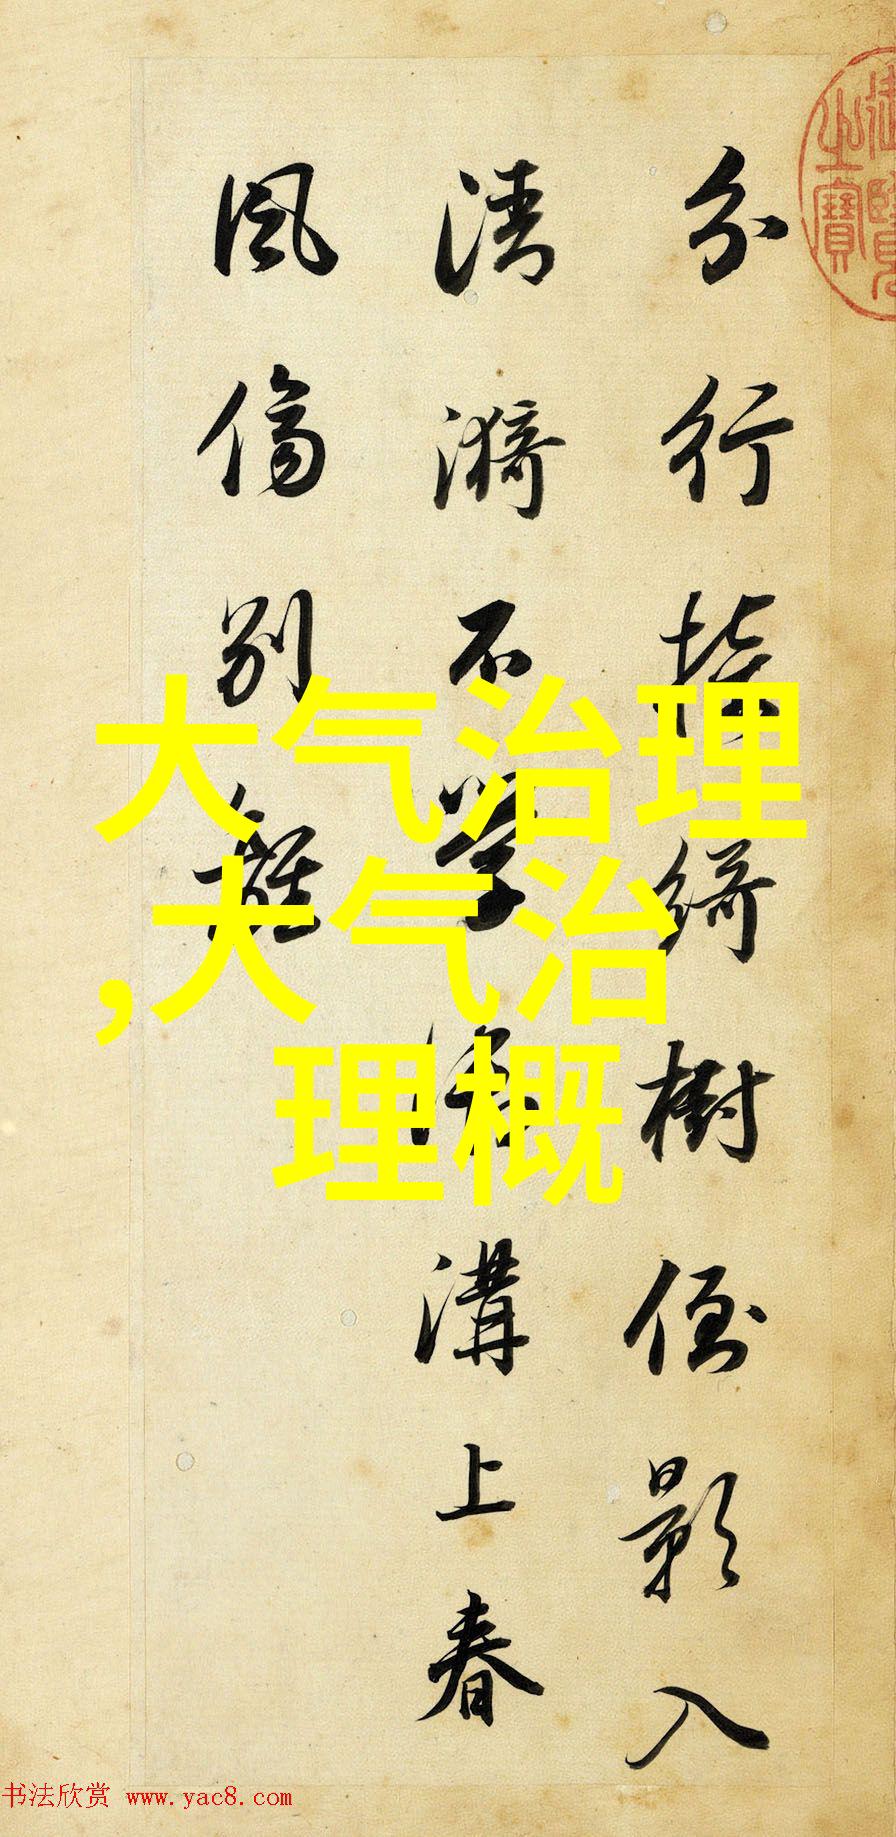 分行接綺樹倒影入
清漪不學御溝上春
風傷別離
御覽
之寶
大气治理
,大气治
理概
书法欣赏 www.yac8.com